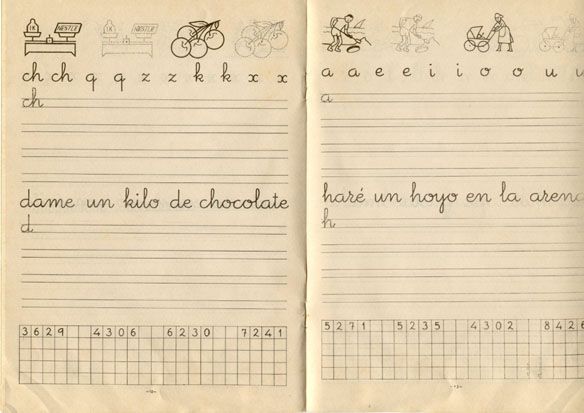 1K NESTLE 1K NESTLE
ch ch q q z z k k x x
ch
dame un kilo de chocolate
d
3629 4306 6230 7241
-12-
a a e e i i o o u u
a
haré un hoyo en la arena
h
5271 5235 4302 8426
-13-